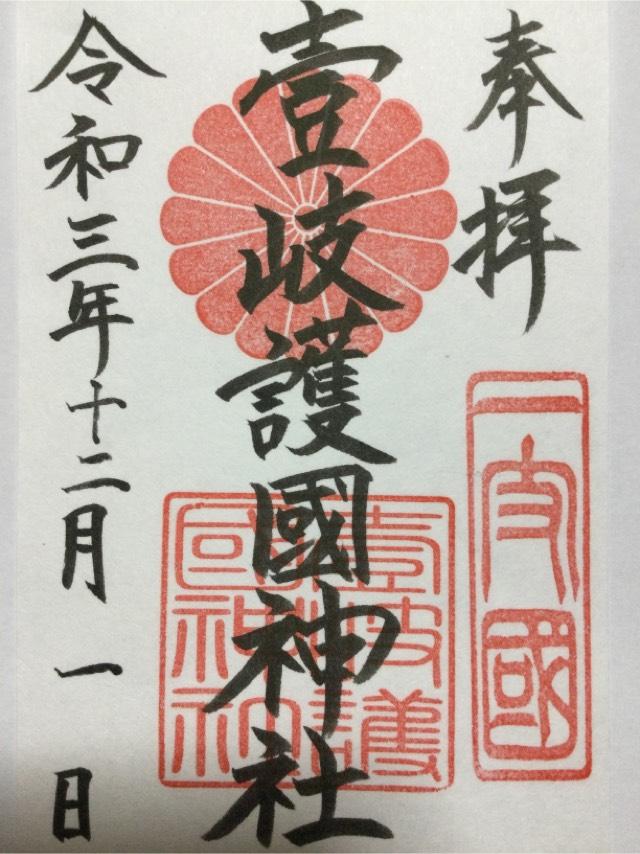 奉拝
一支國
壹岐護國神社
壹岐護國神社
令和三年十二月一日